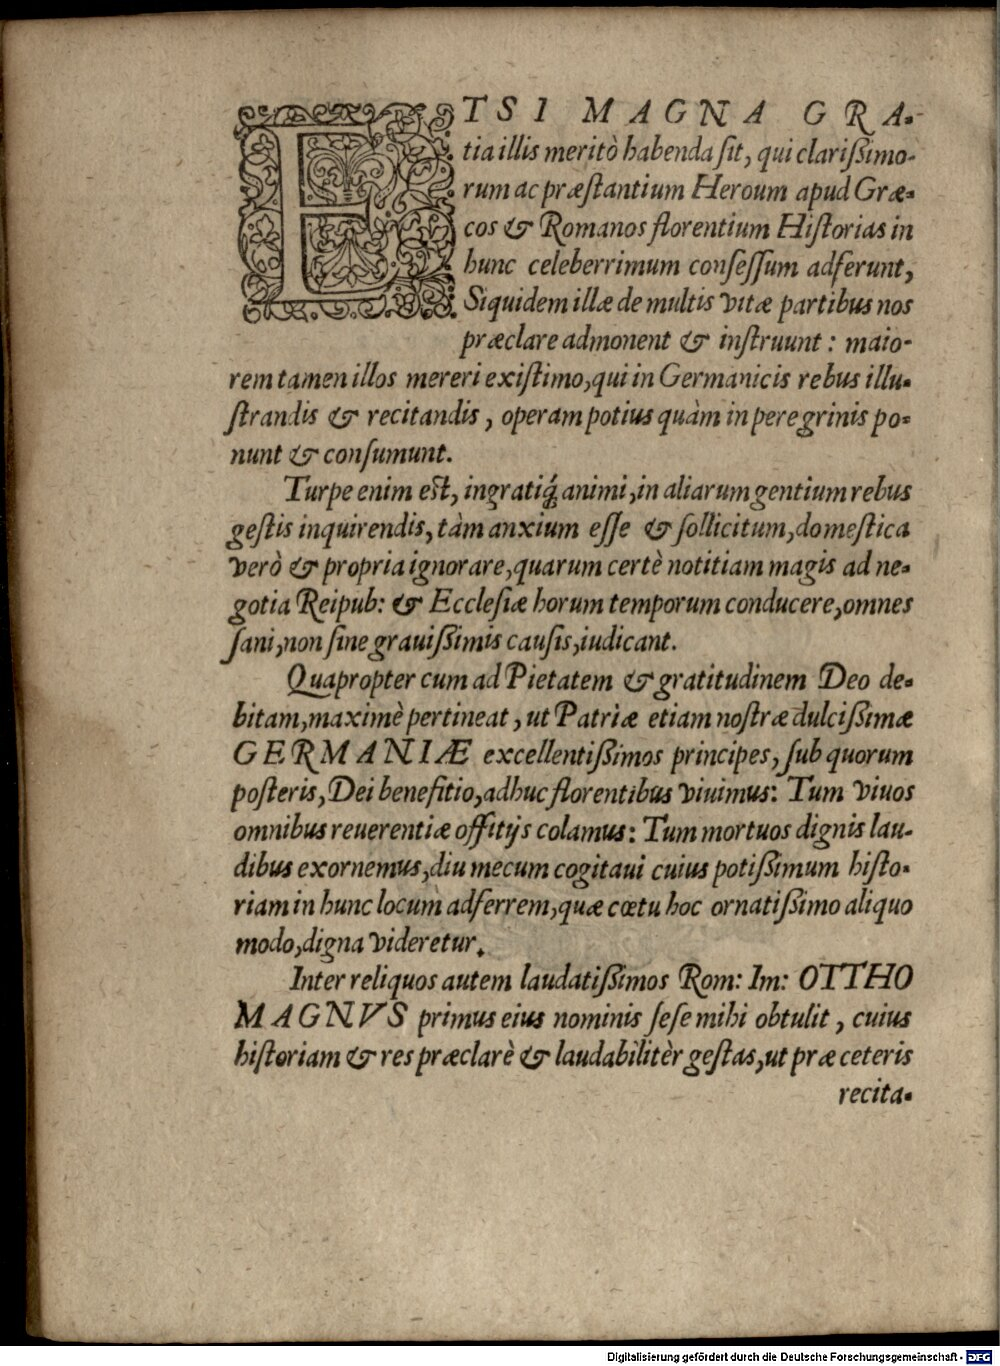 ETSI MAGNA GRA-
tia illis meritò habenda ſit, qui clariſsimo-
rum ac præſtantium Heroum apud Græ-
cos & Romanos florentium Hiſtorias in
hunc celeberrimum conſeſſum adferunt,
Siquidem illæ de multis vitæ partibus nos
præclare admonent & inſtruunt: maio-
rem tamen illos mereri exiſtimo, qui in Germanicis rebus illu-
ſtrandis & recitandis, operam potius quàm in peregrinis po-
nunt & conſumunt.
Turpe enim eſt, ingratiq́; animi, in aliarum gentium rebus
geſtis inquirendis, tàm anxium eſſe & ſollicitum, domeſtica
verò & propria ignorare, quarum certè notitiam magis ad ne-
gotia Reipub: & Eccleſiæ horum temporum conducere, omnes
ſani, non ſine grauiſsimis cauſis, iudicant.
Quapropter cum ad Pietatem & gratitudinem Deo de-
bitam, maximè pertineat, ut Patriæ etiam noſtræ dulciſsimæ
GERMANIÆ excellentiſsimos principes, ſub quorum
poſteris, Dei benefitio, adhuc florentibus viuimus: Tum viuos
omnibus reuerentiæ offitijs colamus: Tum mortuos dignis lau-
dibus exornemus, diu mecum cogitaui cuius potiſsimum hiſto-
riam in hunc locum adferrem, quæ cœtu hoc ornatiſsimo aliquo
modo, digna videretur.
Inter reliquos autem laudatiſsimos Rom: Im: OTTHO
MAGNVS primus eius nominis ſeſe mihi obtulit, cuius
hiſtoriam & res præclarè & laudabilitèr geſtas, ut præ ceteris
recita-
Digitalisierung gefördert durch die Deutsche Forschungsgemeinschaft - DFG